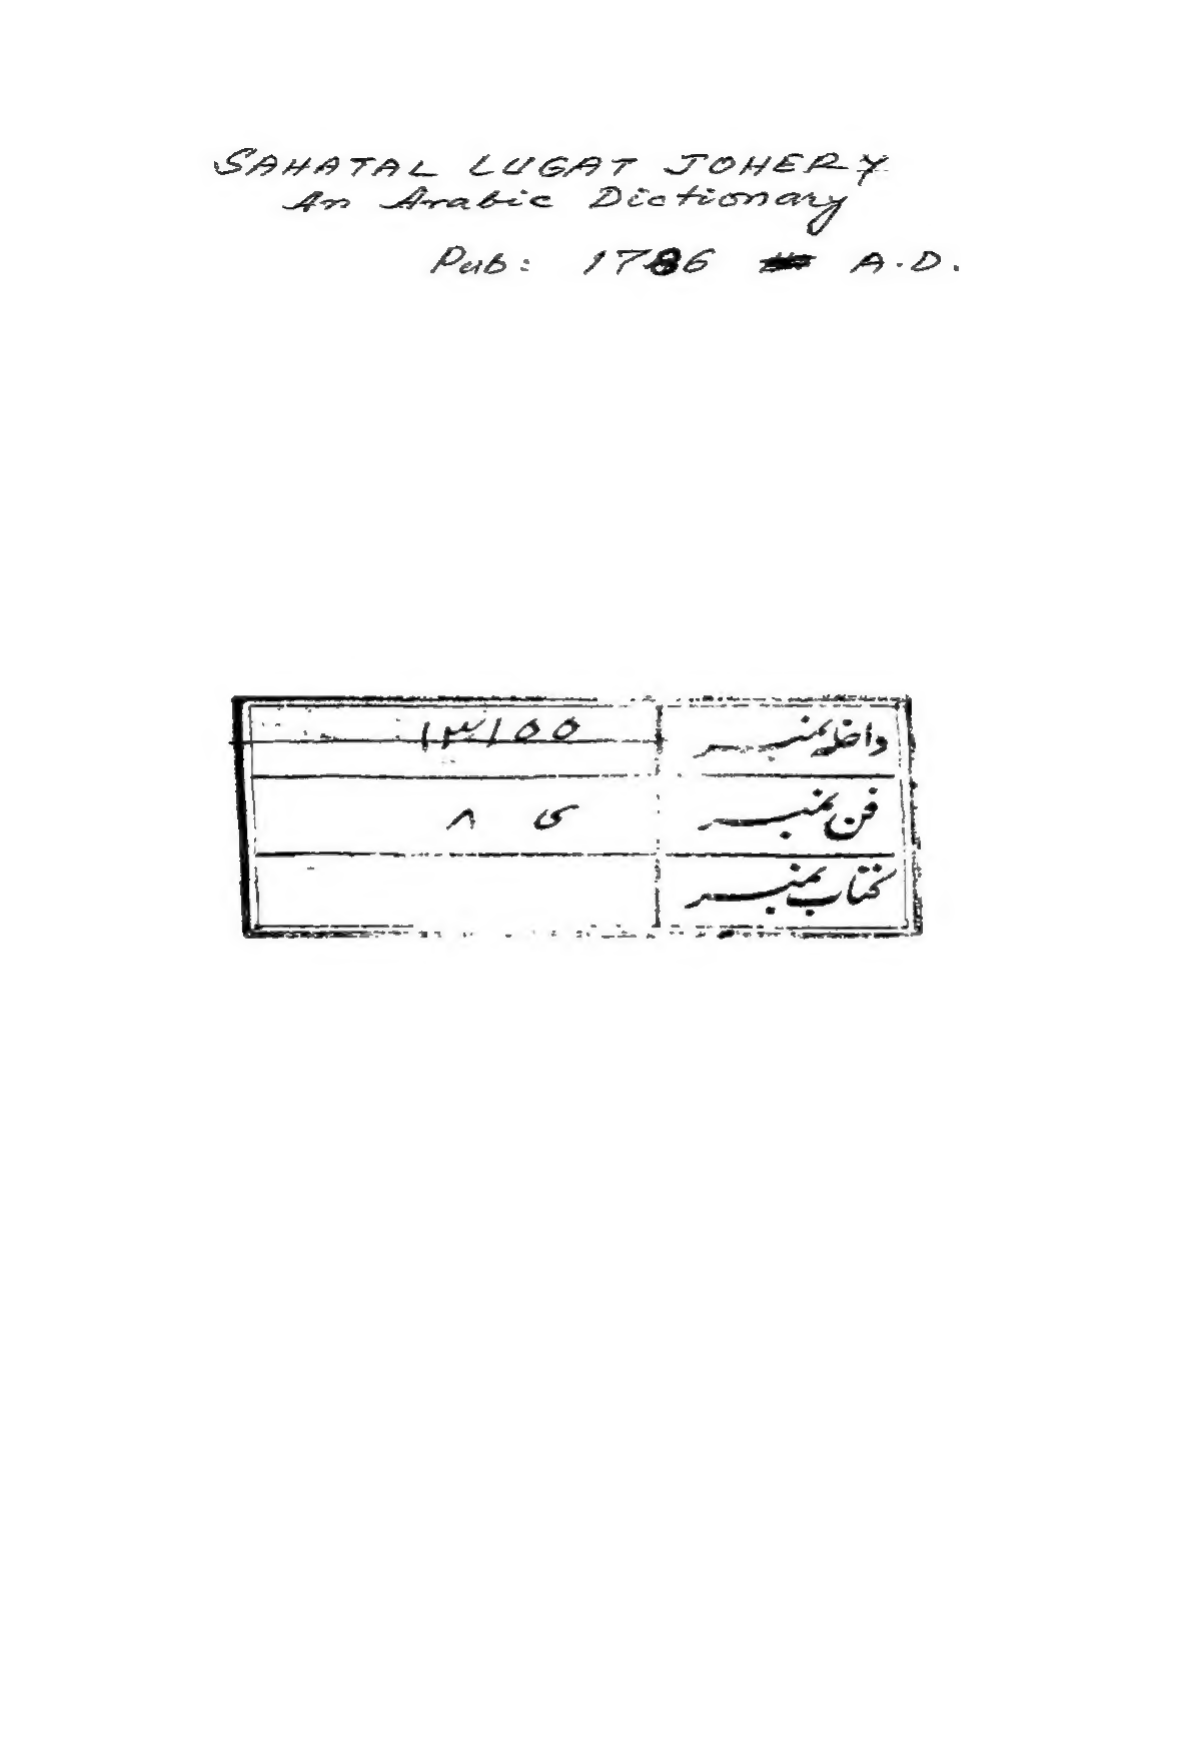 SAHATAL LUGAT JOHERY
An Arabic Dictionary
Pub: 1786 A.D.
داخلہ نمبر ۱۳۱۵۵
فن نمبر ی ۸
کتاب نمبر